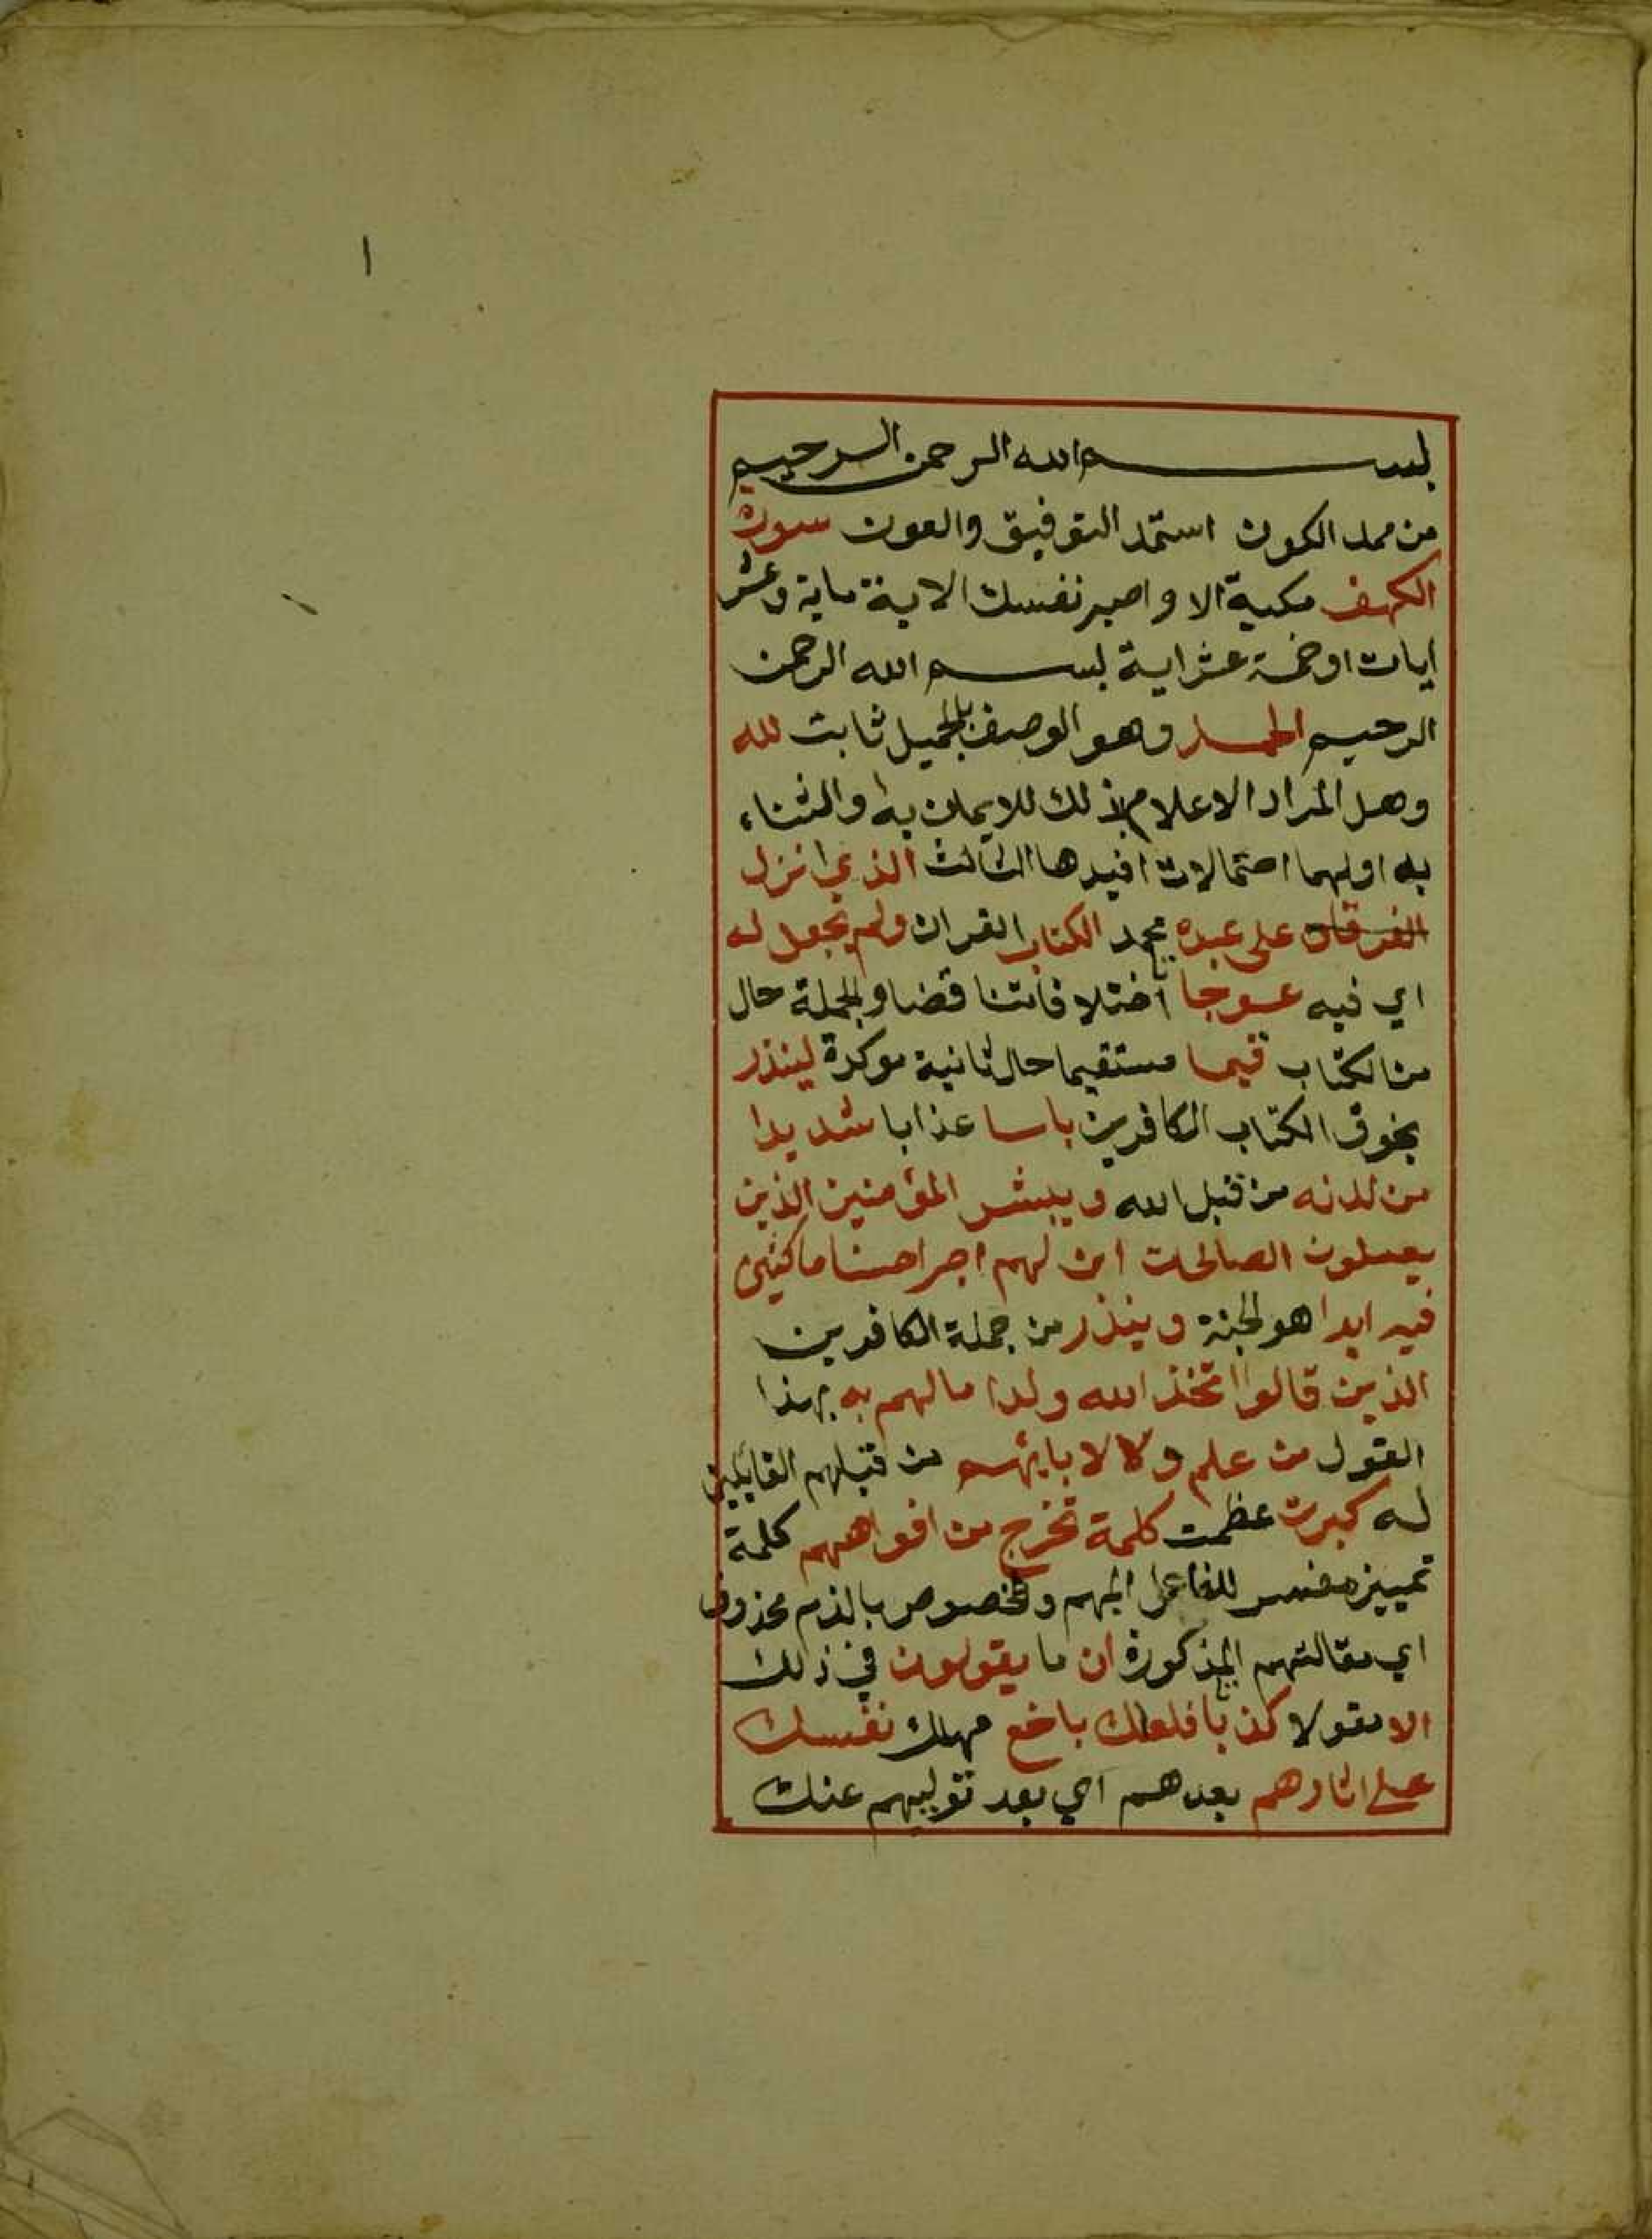 ا
بسم الله الرحمن الرحيم
من ممد الكون استمد التوفيق والعون سورة
الكهف مكية الا واصبر نفسك الاية ماية وعشر
ايات اوخمسة عشر اية بسم الله الرحمن
الرحيم الحمد وهو الوصف بالجميل ثابت لله
وهل المراد الاعلام بذلك للايمان به والثناء
به اولهما احتمالات افيدها الثالث الذي انزل
الفرقان على عبده محمد الكتاب القران ولم يجعل له
اي فيه عوجا اختلافا تناقضا والجملة حال
من الكتاب قيما مستقيما حال ثانية موكدة لينذر
يخوف الكتاب الكافرين باسا عذابا شديدا
من لدنه من قبل الله ويبشر المؤمنين الذين
يعملون الصالحات ان لهم اجرا حسنا ماكثين
فيه ابدا هو الجنة وينذر من جملة الكافرين
الذين قالوا اتخذ الله ولدا مالهم به بهذا
القول من علم ولا لابائهم من قبلهم القايلين
له كبرت عظمت كلمة تخرج من افواههم كلمة
تمييز مفسر للفاعل المبهم والمخصوص بالذم محذوف
اي مقالتهم المذكورة ان ما يقولون في ذلك
الا مقولا كذبا فلعلك باخع مهلك نفسك
على اثارهم بعدهم اي بعد توليهم عنك